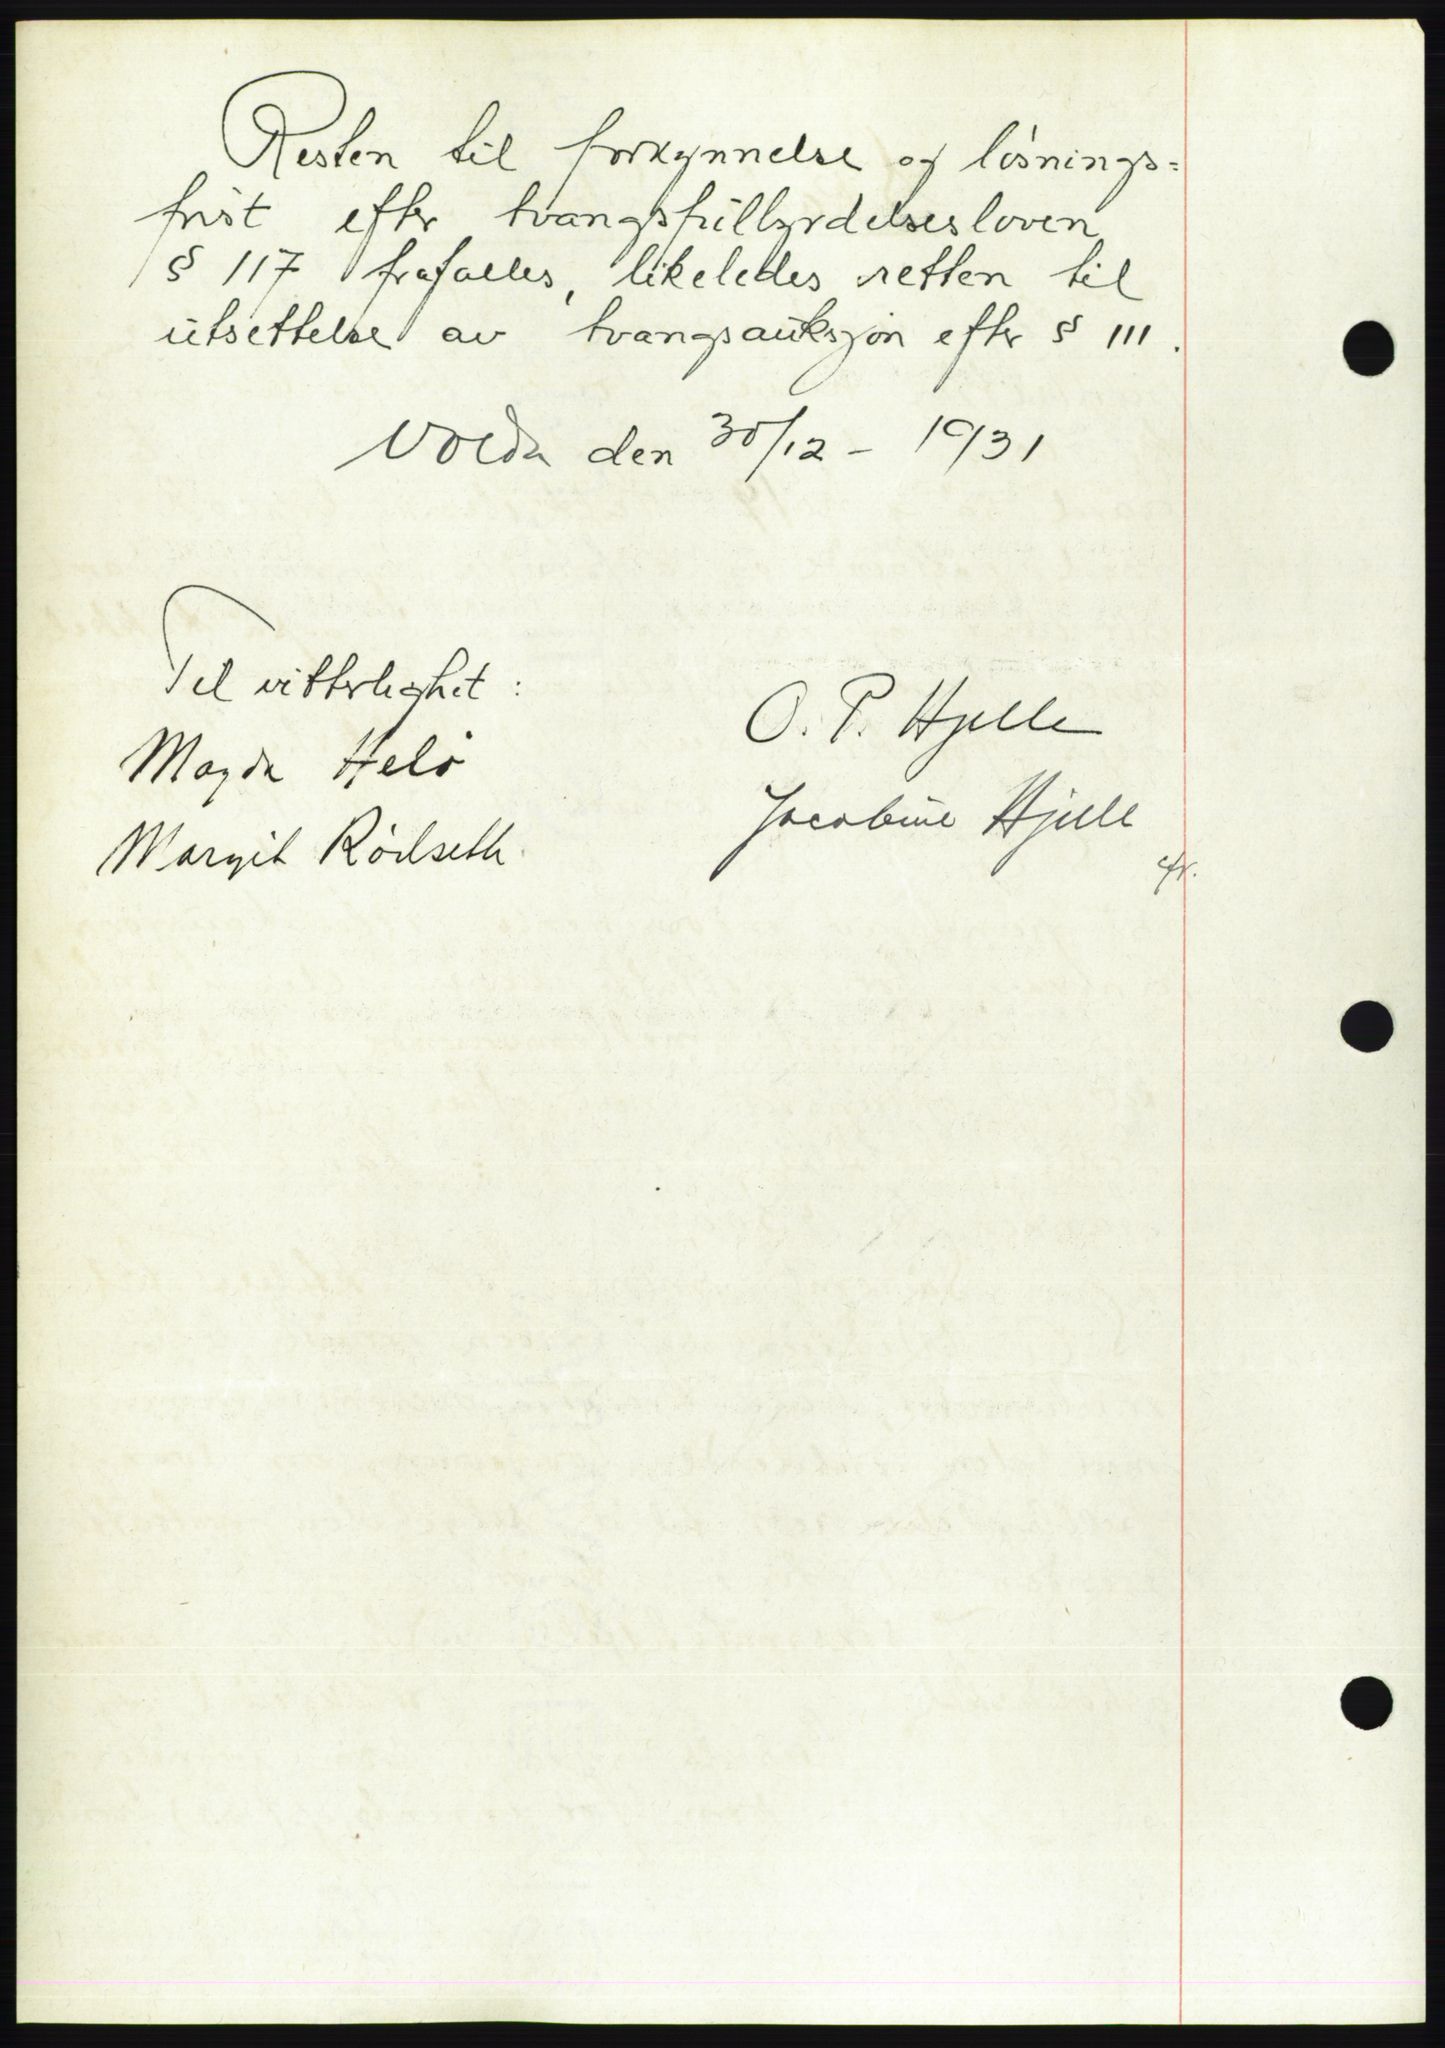 Resten til forkynnelse og løsnings=
frist efter tvangsfullbyrdelsesloven
§ 117 frafalles, likeledes retten til
utsettelse av tvangsauksjon efter § 111.
Volda den 30/12 - 1931
Til vitterlighet:
Magda Helö
Margit Rödseth.
O. P. Hjelle
Jacobine Hjelle